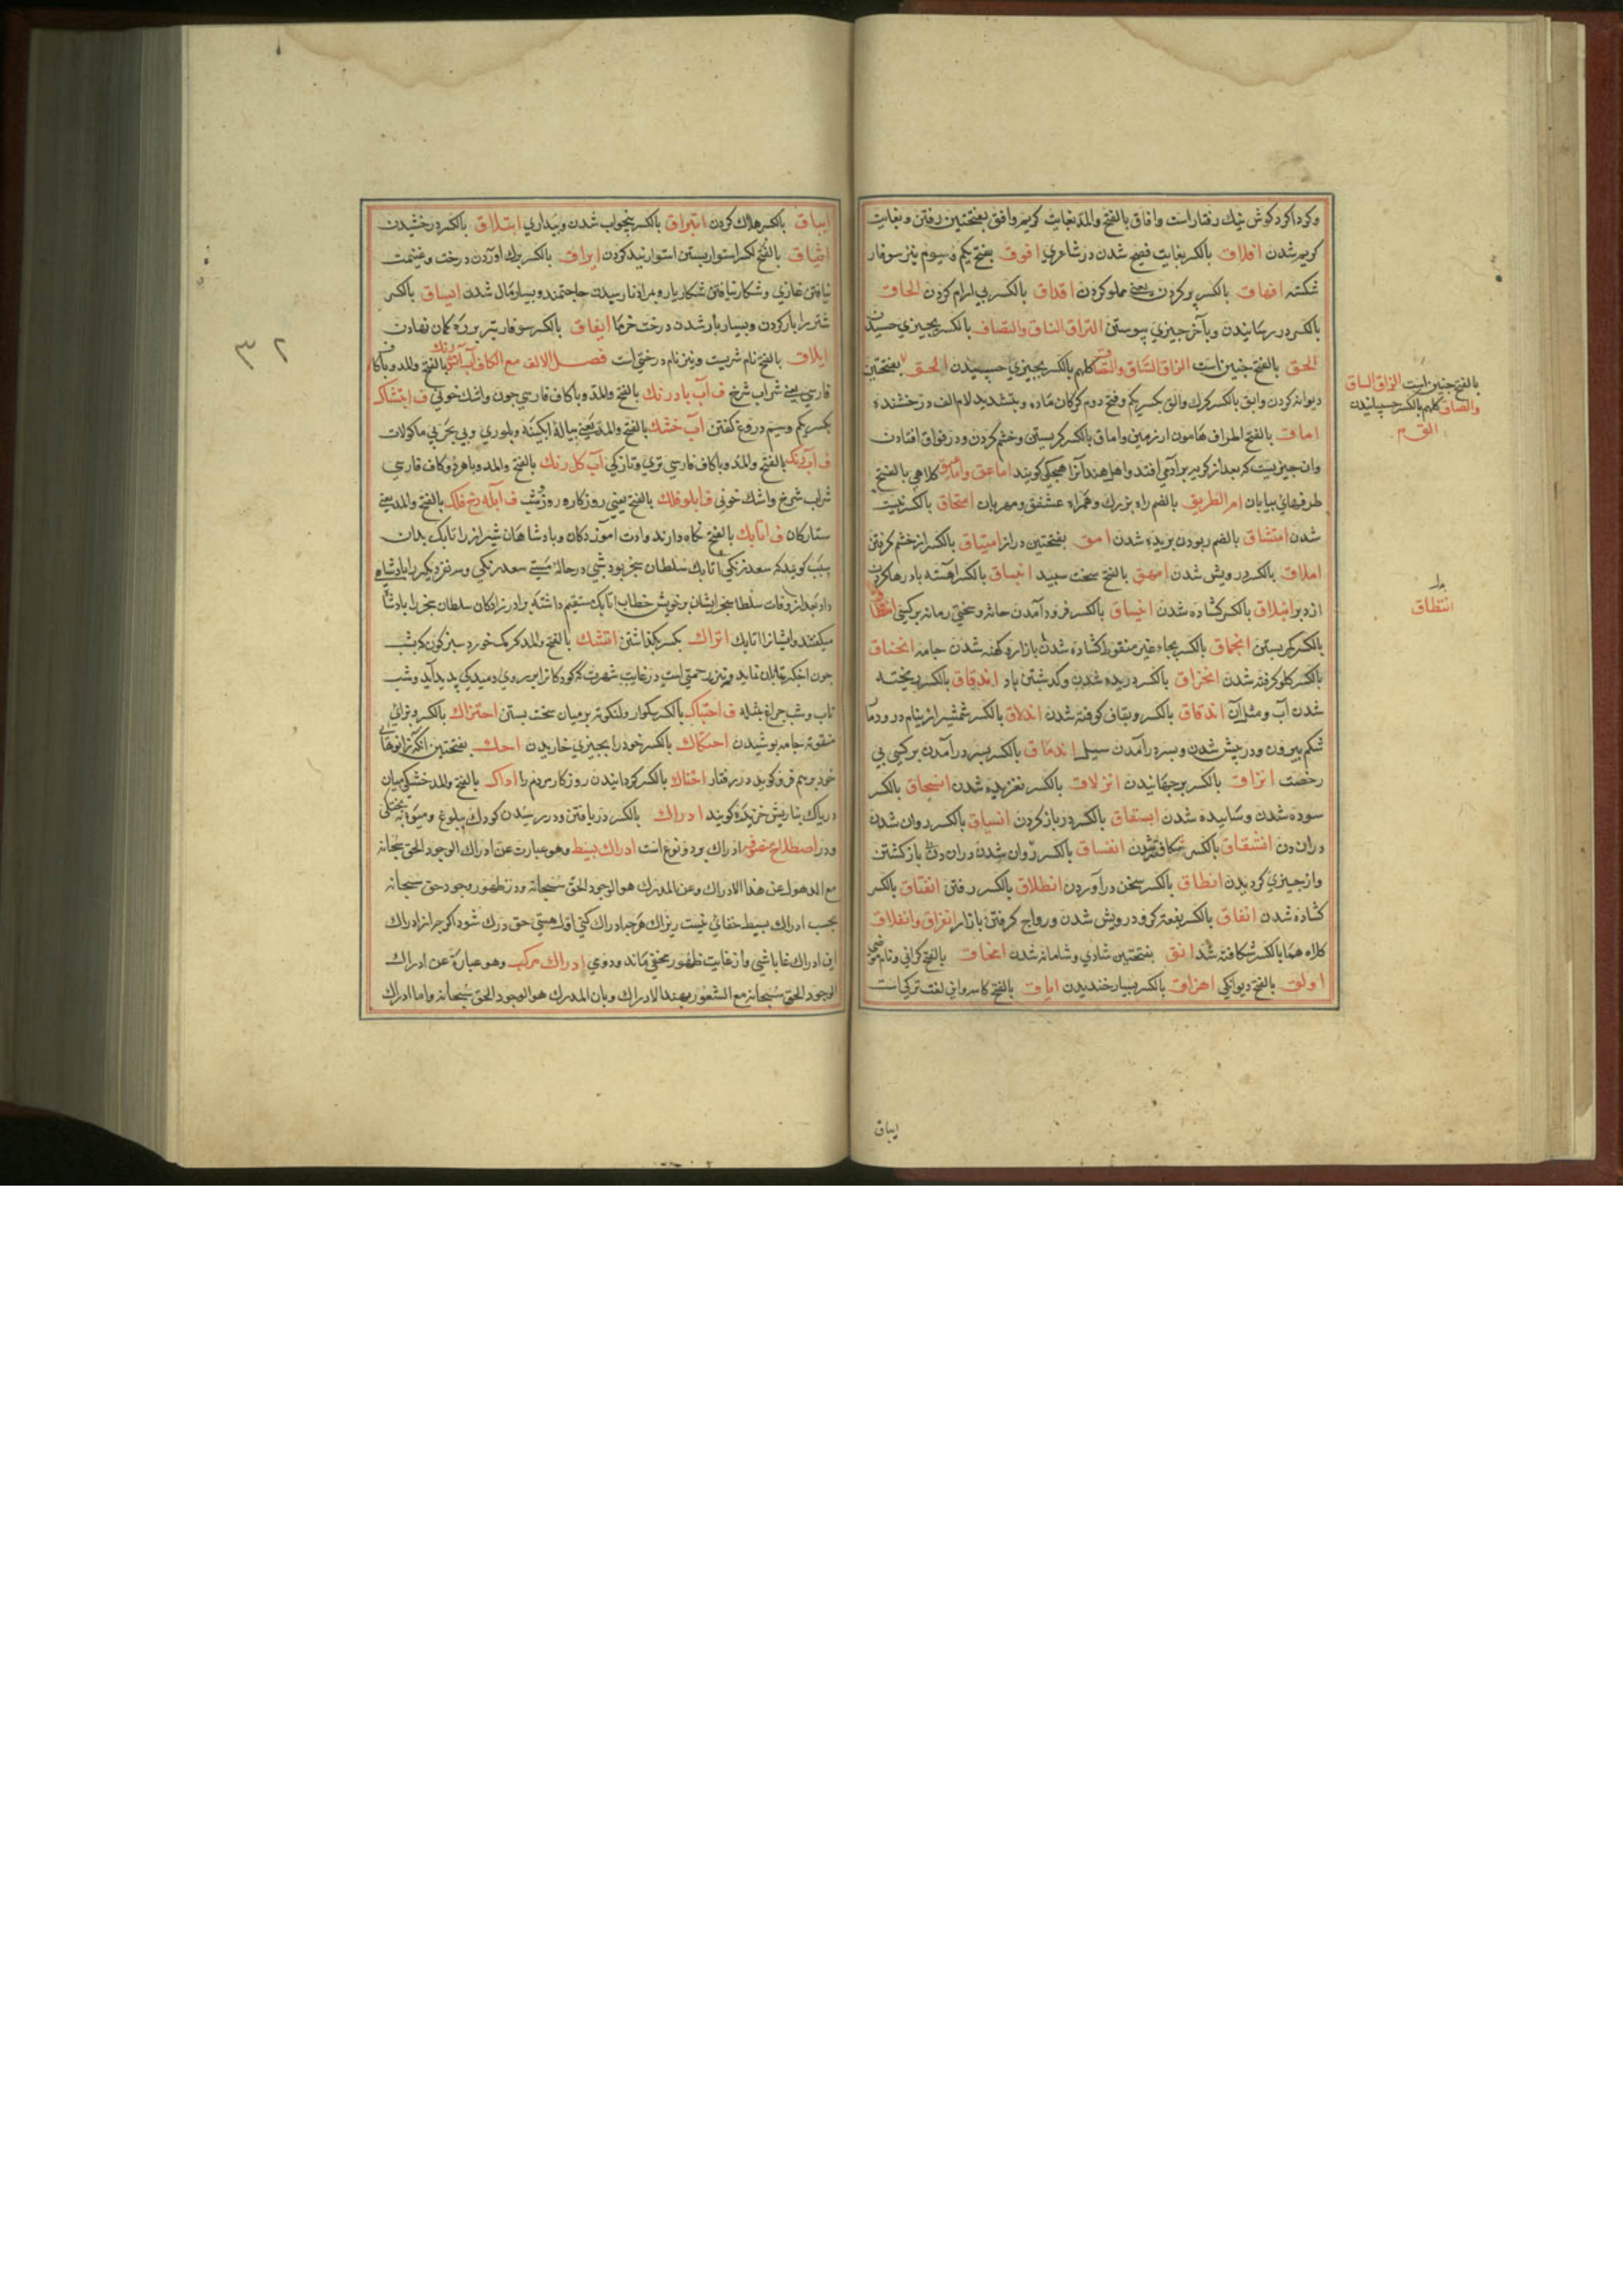 وکرداکرد کوش نیک رفتار است وافاق بالفتح والمد بغایت کریم وافق بفتحتین رفتن وبغایت
کریم شدن افلاق بالکسر بغایت فصیح شدن در شاعری افوق بفتح یکم وسیوم تیز سوفار
شکسته افهاق بالکسر پر کردن یعنی مملو کردن اقلاق بالکسر بی ارام کردن الحاق
بالکسر در رسانیدن وبآخر چیزی پیوستن التزاق التساق والتصاق بالکسر بچیزی
الحق بالفتح چنین است الزاق السّاق کلهم بالکسر بچیزی چسپیدن الحق بفتحتین
دیوانه کردن والق بالکسر کرک والق بکسر یکم وفتح دوم کرکان ماده وبتشدید لام الف درخشنده
اماق بالفتح اطراف هامون از زمین واماق بالکسر کریستن وخشم کردن ودر فواق افتادن
وان چیزیست که بعد از کریه بر آدمی افتد واهل هند آنرا هچکی کویند اماعق کلاهی بالفتح
طرفهای بیابان ام الطریق بالضم راه بزرک وهمراه مشفق ومهربان امحاق بالکسر نیست
شدن امتشاق بالضم ربودن بریده شدن امق بفتحتین دراز امتیاق بالکسر از خشم کرفتن
املاق بالکسر درویش شدن امهق بالفتح سخت سپید انباق بالکسر اهسته باد رها کردن
از دبر انبلاق بالکسر کشاده شدن انبیاق بالکسر فرود آمدن حادثه وسختی زمانه بر کسی
بالکسر کمر بستن انحماق بالکسر بحاء غیر منقوط کشاده شدن بازار وکهنه شدن جامه انخناق
بالکسر کلو کرفته شدن انخراق بالکسر دریده شدن وکذشتن باد اندفاق بالکسر ریخته
شدن آب ومثل آن اندقاق بالکسر وبقاف کوفته شدن اندلاق بالکسر شمشیر از نیام
شکم بیرون ودر پیش شدن وبسر درآمدن سیل اندماق بالکسر بسر درآمدن بر کسی بی
رخصت انزاق بالکسر برجهانیدن انزلاق بالکسر لغزیده شدن انسحاق بالکسر
سوده شدن وساییده شدن استفاق بالکسر در باز کردن انسیاق بالکسر روان شدن
دران دن انشقاق بالکسر شکافته شدن انفساق بالکسر روان شدن بازکشتن
واز چیزی کردیدن انطاق بالکسر سخن در آوردن انطلاق بالکسر رفتن انفتاق بالکسر
کشاده شدن انفاق بالکسر نفقه کردن ودرویش شدن ورواج کرفتن بازار انزاق وانفلاق
کلاهما بالکسر شکافته شدن انق بفتحتین شادی وشادمانه شدن بالفتح کرانی ونام
اولق بالفتح دیوانکی اهزاق بالکسر بسیار خندیدن ایاق بالفتح کاسه وانی لغت ترکی است
بالفتح چنین است الزاق الساق
والصاق کلهم بالکسر چسپانیدن
انتطاق
ایباق
ایباق بالکسر هلاک کردن ایتراق بالکسر بیخواب شدن وبیداری ایتلاق بالکسر درخشیدن
ایثاق بالفتح استوار بستن استوار بند کردن ایراق بالکسر برک آوردن درخت وغنیمت
نیافتن غازی وشکار نیافتن شکاریار وبمراد نارسیدن حاجتمند وبسیار مال شدن ایساق بالکسر
شتر را بار کردن وبسیار بار شدن درخت خرما ایفاق بالکسر سوفار تیر بر زه کمان نهادن
ایلاق بالفتح نام شهریست ونیز نام درختی است فصل الالف مع الکاف بالفتح والمد وبا کاف
فارسی یعنی شراب سرخ ف آب بادرنک بالفتح والمد وبا کاف فارسی چون واشک خونی ف ابتشاک
بکسر یکم وسیم دروغ کفتن آب خشک بالفتح والمد یعنی پیاله آبکینه وبلوری وبی بحر بی ماکولات
بالفتح والمد وبا کاف فارسی تری وتازکی آب کل رنک بالفتح والمد وباهر دو کاف فارسی
شراب سرخ واشک خونی ف ابلق فلک بالفتح یعنی روزکار وروز وشب ف ابله رخ فلک بالفتح والمد یعنی
ستارکان ف اتابک بالفتح نکاه دارنده وادب آموزدکان وپادشاهان شیراز را اتابک بدان
سبب کویند که سعد زنکی اتابک سلطان سنجر بود شبی در حالة مستی سعد زنکی
داد بعد از وفات سلطان سنجر ایشان بر خویش خطاب اتابک مستقیم داشته برادر زادکان سلطان سنجر را پادشا
میکفتند وایشانرا اتابک اتراک بکسر یکم اتشک بالفتح والمد کرمک خورد سبز کون که بشب
چون اخکر تابان نماید ونیز زحمتی است در غایت شهرت که کودکانرا بر روی دمیدکی پدید آید وشب
تاب وشب چراغ بشله ف احتباک بالکسر ولنکوته بر میان سخت بستن احتزاک بالکسر وبزای
منقوطه جامه پوشیدن احتکاک بالکسر خود را بچیزی خاریدن احک بفتحتین آنکه زانوهای
خود بر هم فرو کوبد در رفتار احناک بالکسر کردانیدن روزکار مردم را اداک بالفتح والمد خشکی میان
دریاک بتازیش جزیره کویند ادراک بالکسر دریافتن ودر رسیدن کودک ببلوغ ومیوه به پختکی
ودر اصطلاح متصوفه ادراک بر دو نوع است ادراک بسیط وهو عبارت عن ادراک الوجود الحق سبحانه
مع الذهول عن هذا الادراک وعن المدرک هو الوجود الحق سبحانه ودر ظهور وجود حق سبحانه
بحسب ادراک بسیط خفائی نیست زیراک هر چه ادراک کنی اول هستی حق درک شود اکرچه از ادراک
این ادراک غافل باشی واز غایت ظهور مخفی ماند ودوی ادراک مرکب وهو عبارة عن ادراک
الوجود الحق سبحانه مع الشعور بهذا الادراک وبان المدرک هو الوجود الحق سبحانه واما ادراک
٣٢